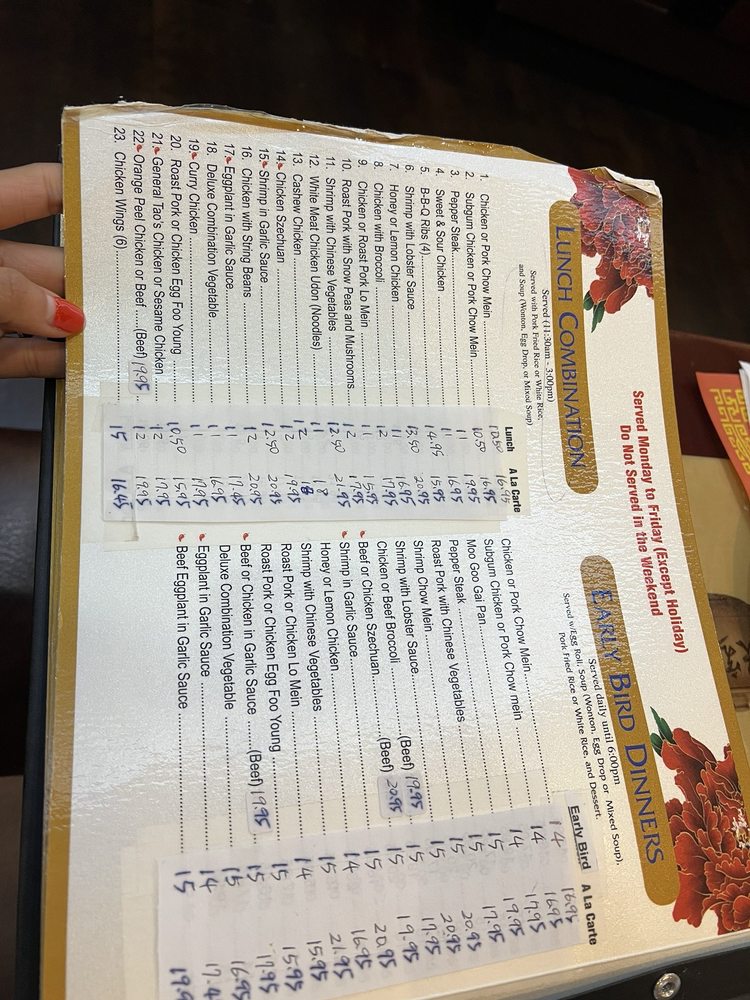 Served Monday to Friday (Except Holiday)
Do Not Served in the Weekend
LUNCH COMBINATION
Served (11:30am - 3:00pm)
Served with Pork Fried Rice or White Rice,
and Soup (Wonton, Egg Drop, or Mixed Soup)
Lunch A La Carte
1. Chicken or Pork Chow Mein 10.50 16.95
2. Subgum Chicken or Pork Chow Mein 10.50 16.95
3. Pepper Steak 11 19.95
4. Sweet & Sour Chicken 11 16.95
5. B-B-Q Ribs (4) 14.95 15.95
6. Shrimp with Lobster Sauce 13.50 20.95
7. Honey or Lemon Chicken 11 16.95
8. Chicken with Broccoli 12 17.95
9. Chicken or Roast Pork Lo Mein 11 15.95
10. Roast Pork with Snow Peas and Mushrooms 12 17.95
11. Shrimp with Chinese Vegetables 12.50 21.95
12. White Meat Chicken Udon (Noodles) 11 18
13. Cashew Chicken 12 18
14. Chicken Szechuan 12 19.95
15. Shrimp in Garlic Sauce 12.50 20.95
16. Chicken with String Beans 12 20.95
17. Eggplant in Garlic Sauce 11 17.45
18. Deluxe Combination Vegetable 11 16.95
19. Curry Chicken 11 17.95
20. Roast Pork or Chicken Egg Foo Young 10.50 15.95
21. General Tao's Chicken or Sesame Chicken 12 17.95
22. Orange Peel Chicken or Beef (Beef) 19.95 12 19.95
23. Chicken Wings (6) 15 16.45
EARLY BIRD DINNERS
Served daily until 6:00pm
Served w/Egg Roll, Soup (Wonton, Egg Drop or Mixed Soup),
Pork Fried Rice or White Rice, and Dessert.
Early Bird A La Carte
Chicken or Pork Chow Mein 14 16.95
Subgum Chicken or Pork Chow mein 14 16.95
Moo Goo Gai Pan 14 17.95
Pepper Steak 15 19.95
Roast Pork with Chinese Vegetables 15 17.95
Shrimp Chow Mein 15 20.95
Shrimp with Lobster Sauce 15 20.95
Chicken or Beef Broccoli (Beef) 19.95 15 17.95
Beef or Chicken Szechuan (Beef) 20.95 15 19.95
Shrimp in Garlic Sauce 15 20.95
Honey or Lemon Chicken 14 16.95
Shrimp with Chinese Vegetables 15 21.95
Roast Pork or Chicken Lo Mein 14 15.95
Roast Pork or Chicken Egg Foo Young 15 15.95
Beef or Chicken in Garlic Sauce (Beef) 19.95 15 17.95
Deluxe Combination Vegetable 15 16.95
Eggplant in Garlic Sauce 14 17.4
Beef Eggplant in Garlic Sauce 15 19.9